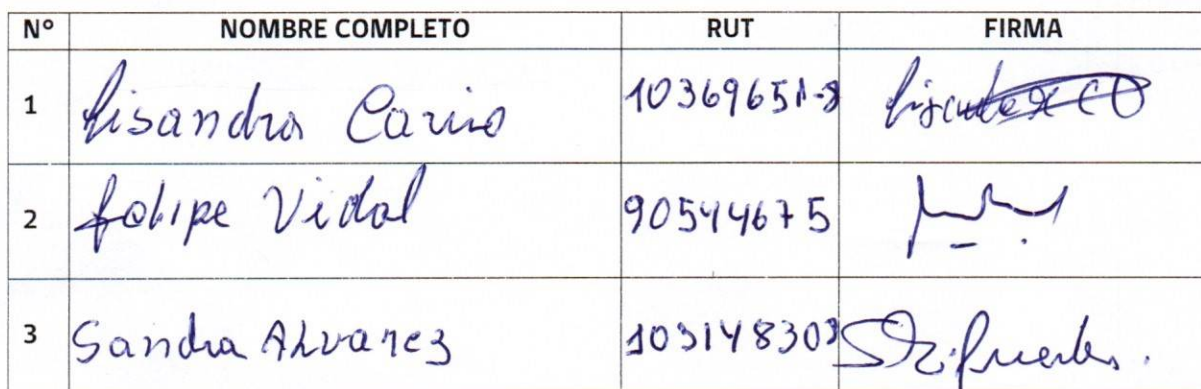 N° NOMBRE COMPLETO RUT FIRMA
1 Lisandra 10369651-8
2 Felipe Vidal 90544675
3 Sandra Alvarez 103148303